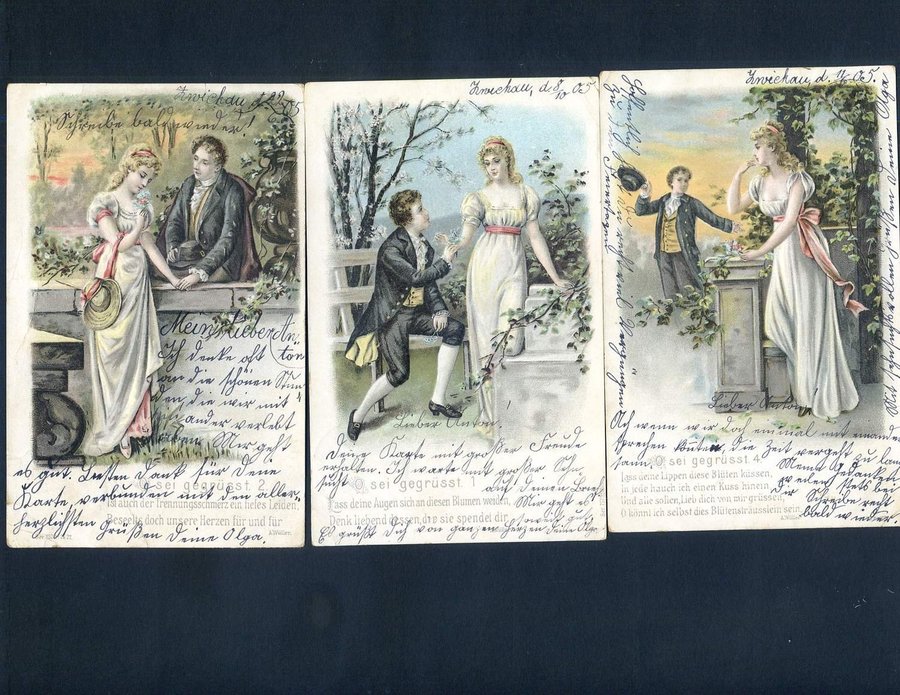 Zwickau, d. 29.
Schreibe bald wieder!
Mein lieber An-
ton
Ich denke oft
an die schönen Stun-
den, die wir mit
einander verlebt
Mir geht
es gut. Besten Dank für Deine
Karte, verbunden mit den aller-
herzlichsten Grüßen Deine Olga.
O, sei gegrüsst. 2.
Ist auch der Trennungsschmerz ein tiefes Leiden,
Beseele doch unsere Herzen für und für
A. Müller.
Zwickau, d. 8/10 05
Lieber Anton!
Deine Karte mit großer Freude
erhalten. Ich warte mit großer Sehn-
sucht auf Deinen Brief
O, sei gegrüsst. 1.
Lass deine Augen sich an diesen Blumen weiden,
Mir geht es
Denk liebend dessen, der sie spendet dir,
Es grüßt Dich von ganzem Herzen Deine Olga
Zwickau, d. 05.
Lieber Anton!
Ach wenn wir doch einmal mit einander
sprechen könnten, die Zeit vergeht zu lang-
sam.
O, sei gegrüsst.
Lass deine Lippen diese Blüten küssen
In jede hauch ich einen Kuss hinein
Und alle sollen, Lieb, dich von mir grüssen,
O könnt ich selbst dies Blütensträusslein sein.
A. Müller
Schreibe recht
bald wieder.
Mit sehnsuchtsvollen Grüßen Deine Olga